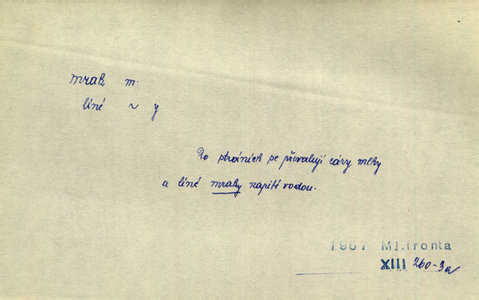 mrak m.
líné ~ y
Po stráních se převalují cáry mlhy
a líné mraky napité vodou.
1957 Ml.fronta
XIII 260-3a